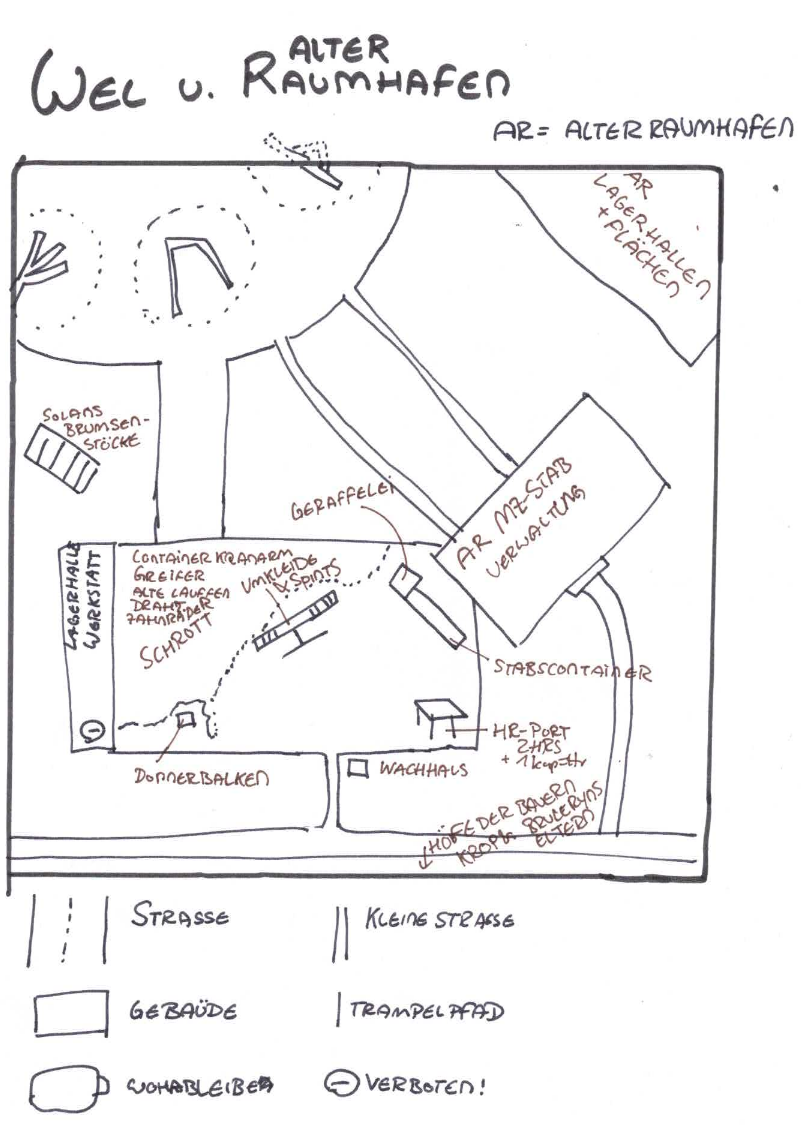 ALTER
WEL U. RAUMHAFEN
AR = ALTER RAUMHAFEN
AR
LAGERHALLEN
+ FLÄCHEN
SOLAMS
BRUMSEN-
STÖCKE
GERAFFELEI
AR MZ-STAB
VERWALTUNG
LAGERHALLE
WERKSTATT
CONTAINER KRANARM
GREIFER
ALTE LAUFFEN
DRAHT
ZAHNRÄDER
SCHROTT
UMKLEIDE
& SPINTS
STABSCONTAINER
DONNERBALKEN
HR-PORT
2HRS
+ 1
WACHHAUS
HÖFE DER BAUERN
ELTERN
STRASSE
KLEINE STRASSE
GEBAÜDE
TRAMPELPFAD
VERBOTEN!